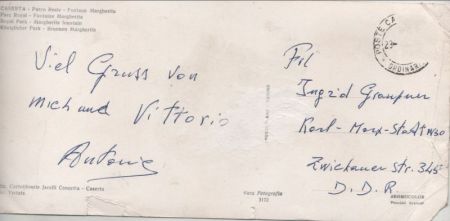 CASERTA - Parco Reale - Fontana Margherita
Parc Royal - Fontaine Margherita
Royal Park - Margherita fountain
Königlicher Park - Brunnen Margherita
Viel Gruss von
Mich und Vittorio
Antonio
POSTE CA
ORDINAR
Frl
Ingrid Graupner
Karl-Marx-Stadt N30
Zwickauer Str. 345
D.D.R
Ed. Cartolibreria Jacelli Concetta - Caserta
Vietata
Vera Fotografia
3172